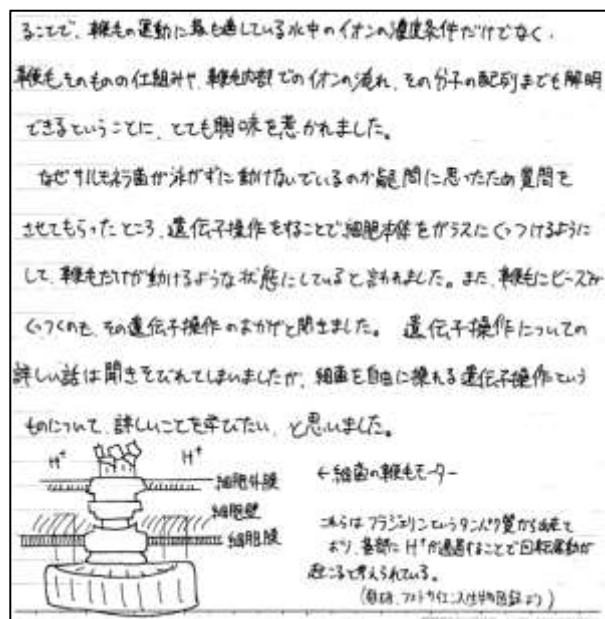 ることで、鞭毛の運動に最も適している水中のイオンの濃度条件だけでなく、
鞭毛そのものの仕組みや、鞭毛内部でのイオンの流れ、その分子の配列までも解明
できるということに、とても興味を惹かれました。
なぜサルモネラ菌が泳がずに動けないでいるのか疑問に思ったため質問を
させてもらったところ、遺伝子操作をすることで細胞本体をガラスにくっつけるように
して、鞭毛だけが動けるような状態にしていると言われました。また、鞭毛にビーズが
くっつくのも、その遺伝子操作のおかげと聞きました。 遺伝子操作についての
詳しい話は聞きそびれてしまいましたが、細菌を自由に操れる遺伝子操作という
ものについて、詳しいことを学びたい、と思いました。
H⁺ H⁺
細胞外膜
細胞壁
細胞膜
←細菌の鞭毛モーター
これらはフラジェリンというタンパク質から出来て
おり、基部に H⁺が通過することで回転運動が
起こると考えられている。
フォトサイエンス生物図録より)